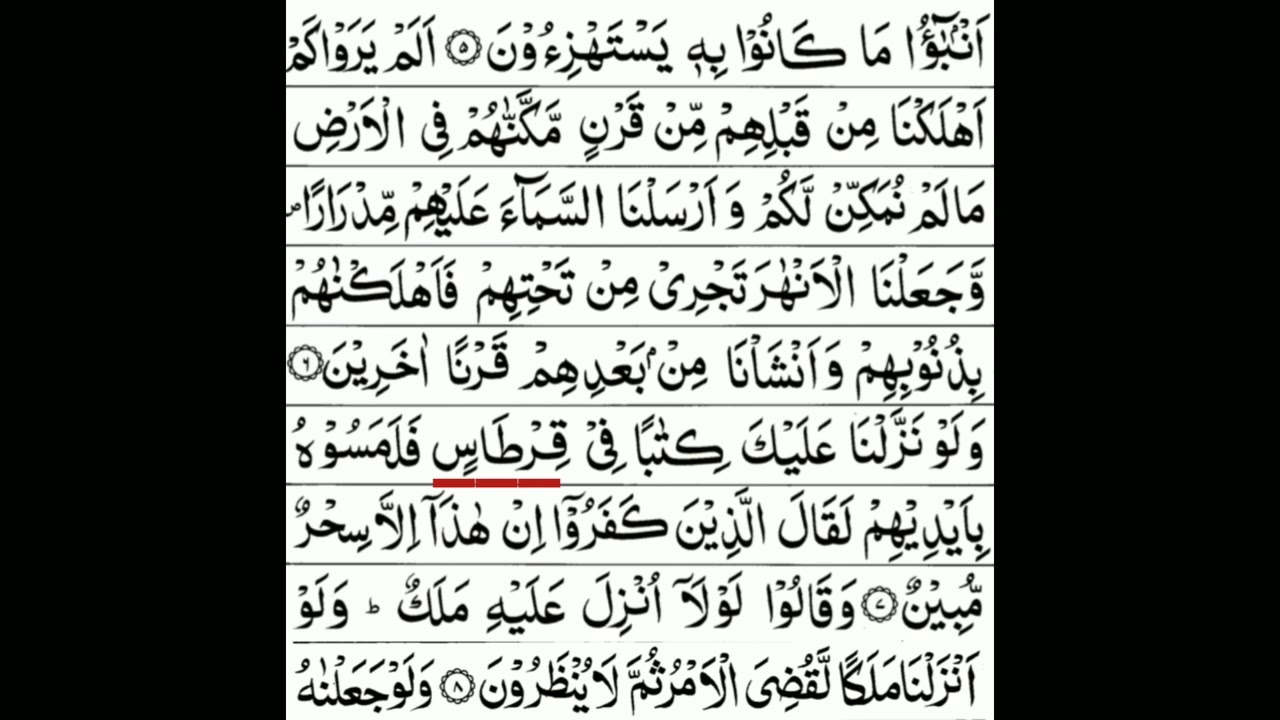 اَنْۢبٰٓؤُا مَا كَانُوْا بِهٖ يَسْتَهْزِءُوْنَ ۵ اَلَمْ يَرَوْا كَمْ
اَهْلَكْنَا مِنْ قَبْلِهِمْ مِّنْ قَرْنٍ مَّكَّنّٰهُمْ فِى الْاَرْضِ
مَا لَمْ نُمَكِّنْ لَّكُمْ وَ اَرْسَلْنَا السَّمَآءَ عَلَيْهِمْ مِّدْرَارًا ص
وَّجَعَلْنَا الْاَنْهٰرَ تَجْرِىْ مِنْ تَحْتِهِمْ فَاَهْلَكْنٰهُمْ
بِذُنُوْبِهِمْ وَاَنْشَاْنَا مِنْۢ بَعْدِهِمْ قَرْنًا اٰخَرِيْنَ ۶
وَلَوْ نَزَّلْنَا عَلَيْكَ كِتٰبًا فِىْ قِرْطَاسٍ فَلَمَسُوْهُ
بِاَيْدِيْهِمْ لَقَالَ الَّذِيْنَ كَفَرُوْٓا اِنْ هٰذَآ اِلَّا سِحْرٌ
مُّبِيْنٌ ۷ وَقَالُوْا لَوْلَآ اُنْزِلَ عَلَيْهِ مَلَكٌ ؕ وَلَوْ
اَنْزَلْنَا مَلَكًا لَّقُضِىَ الْاَمْرُ ثُمَّ لَا يُنْظَرُوْنَ ۸ وَلَوْ جَعَلْنٰهُ